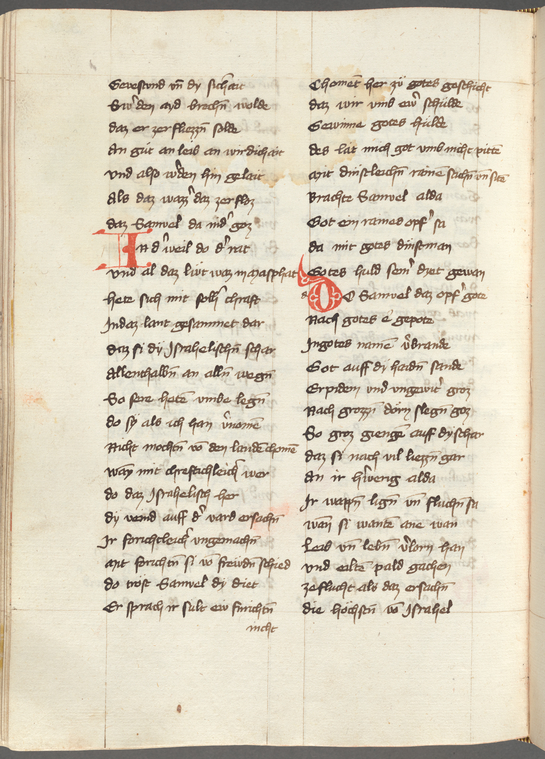 Bevestund vn̄ dy sichait
Sw̓ den ayd brechn̄ wolde
daz er zerfliezzn̄ solde
An gůt an leib an wirdichait
vnd also w̓den hin gelait
Als daz wazz̓ daz zerfloz
daz Samuel da nid̓ goz
In d̓ weil do d̓ rat
vnd al daz liwt waz in masphat
hete sich mit solh̓ chraft
In daz lant gesammet dar
daz si dy Israhelischn̄ schar
Allenthalbn̄ an alln̄ wegn̄
So sere hetē vnde legn̄
do sy als ich han v̓nomē
Nicht mochtn̄ vō den landē chomē
wan mit chreftichleich̓ wer
do daz Israhelisch her
dy veind auff d̓ vard ersachn̄
Ir forichtleich vngemachn̄
mit forichtn̄ si vō frewdn̄ schied
do trost Samuel dy diet
Er sprach ir sult ew fürichtn̄
nicht
Chomēt her zů gotes geschicht
daz wir vmb ew̓ schulde
Gewinne gotes hulde
des lat mich got vmb nicht pitten
mit dinstleichn̄ raine sachn̄ vn̄ sitē
Brachte Samuel alda
Got ein raines opf̓ sa
da mit gotes dinstman
Gotes huld sein̄ diet gewan
Do Samuel daz opf̓ gote
Nach gotes e gepote
In gotes namē v̓brande
Got auff dy haidn̄ sande
Erpiden vnd vngewit̓ groz
Nach grozzn̄ dorn̄ slegn̄ goz
So groz gieng̓ auff dy schar
daz si nach vil liezzn̄ gar
An ir h̓werig alda
Ir wappn̄ lign̄ vn̄ fluchn̄ sa
wan si wantē ane wan
Leib vn̄ lebn̄ v̓lorn han
vnd eiltē pald gachen
ze flucht als daz ersachn̄
die höchstn̄ vō Israhel